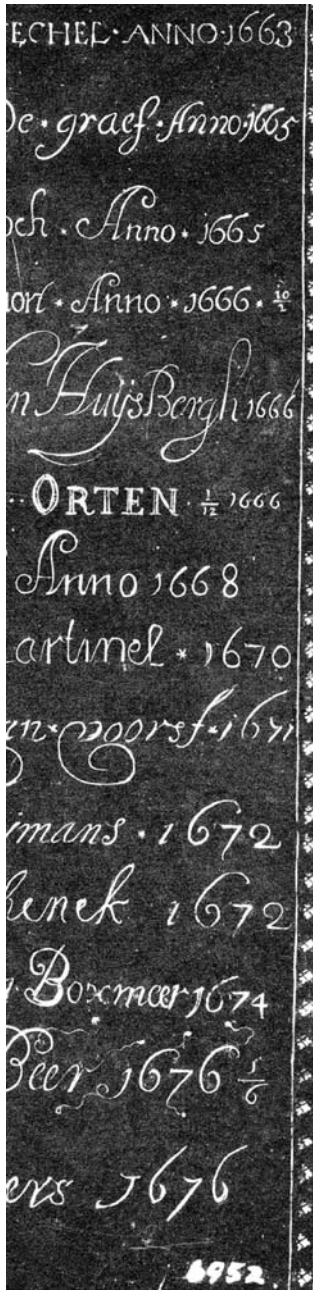 ECHEL·ANNO·1663
De * graef * Anno·1665
och * Anno * 1665
Anno * 1666 * 10/2
n HuijsBergh 1666
·· ORTEN · 1/12 1666
Anno 1668
artinel * 1670
an * voorst * 1671
imans · 1672
henck 1672
Boxmeer 1674
Beer 1676 1/6
ers 1676
6952